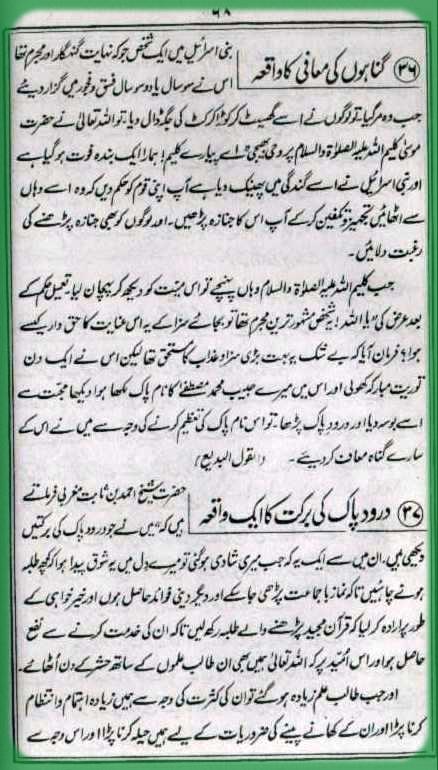 ۶۸
۳۶ گناہوں کی معافی کا واقعہ
بنی اسرائیل میں ایک شخص جو کہ نہایت گنہگار اور مجرم تھا
اس نے سو سال یا دو سو سال فسق و فجور میں گزار دیئے
جب وہ مر گیا تو لوگوں نے اسے گھسیٹ کر کوڑا کرکٹ کی جگہ ڈال دیا، تو اللہ تعالیٰ نے حضرت
موسیٰ کلیم اللہ علیہ الصلوٰۃ والسلام پر وحی بھیجی "اے پیارے کلیم! ہمارا ایک بندہ فوت ہو گیا ہے
اور بنی اسرائیل نے اسے گندگی میں پھینک دیا ہے آپ اپنی قوم کو حکم دیں کہ وہ اسے وہاں
سے اٹھائیں تجہیز و تکفین کر کے آپ اس کا جنازہ پڑھیں۔ اور لوگوں کو بھی جنازہ پڑھنے کی
رغبت دلائیں۔
جب کلیم اللہ علیہ الصلوٰۃ والسلام وہاں پہنچے تو اس میّت کو دیکھ کر پہچان لیا۔ تعمیل حکم کے
بعد عرض کی "یا اللہ! یہ شخص مشہور ترین مجرم تھا تو بجائے سزا کے یہ اس عنایت کا حق دار کیسے
ہوا؟ فرمان آیا کہ بے شک یہ بہت بڑی سزا و عذاب کا مستحق تھا لیکن اس نے ایک دن
توریت مبارکہ کھولی اور اس میں میرے حبیب محمد مصطفےٰ کا نام پاک لکھا ہوا دیکھا محبت سے
اسے بوسہ دیا اور درود پاک پڑھا۔ تو اس نام پاک کی تعظیم کرنے کی وجہ سے میں نے اس کے
سارے گناہ معاف کر دیئے۔ (القول البدیع)
۳۷ درود پاک کی برکت کا ایک واقعہ
حضرت شیخ احمد بن ثابت مغربی فرماتے
ہیں کہ "میں نے جو درود پاک کی برکتیں
دیکھی ہیں، ان میں سے ایک یہ کہ جب میری شادی ہو گئی تو میرے دل میں یہ شوق پیدا ہوا کہ کچھ طلبہ
ہونے چاہئیں تاکہ نماز با جماعت پڑھی جا سکے اور دیگر دینی فوائد حاصل ہوں اور خیر خواہی کے
طور پر ارادہ کر لیا کہ قرآن مجید پڑھنے والے طلبہ رکھ لیں تاکہ ان کی خدمت کرنے سے نفع
حاصل ہو اور اس اُمّید پر کہ اللہ تعالیٰ ہمیں بھی ان طالب علموں کے ساتھ حشر کے دن اُٹھائے۔
اور جب طالب علم زیادہ ہو گئے تو ان کی کثرت کی وجہ سے ہمیں زیادہ اہتمام و انتظام
کرنا پڑا اور ان کے کھانے پینے کی ضروریات کے لیے ہمیں حیلہ کرنا پڑا اور اس وجہ سے